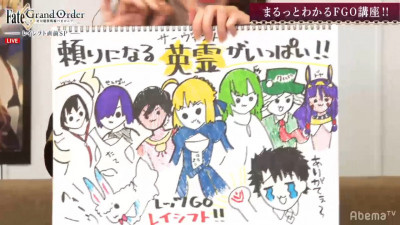 Fate Grand Order
まるっとわかるFGO講座!!
LIVE
レイシフト直前SP
サーヴァント
頼りになる英霊がいっぱい!!
レッツGO
レイシフト!!
ありがてぇ
AbemaTV